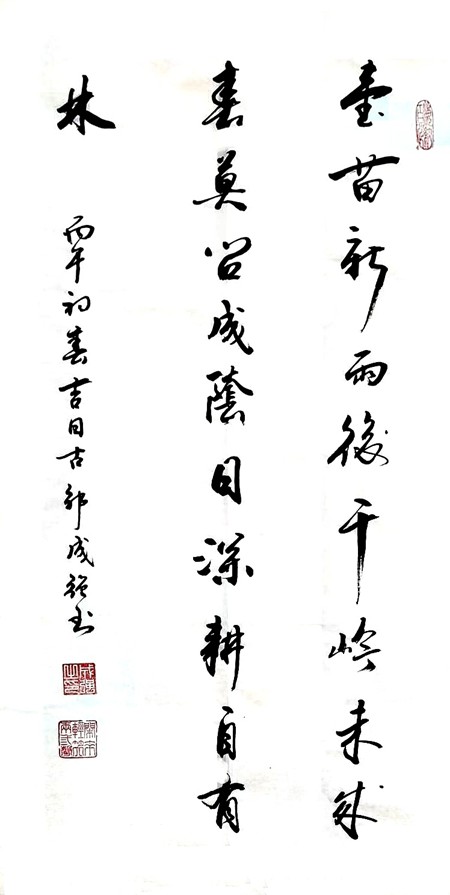 壹苗新雨後千岭未成
春莫問成蔭日深耕自有
林
丙午初春吉日古成強书